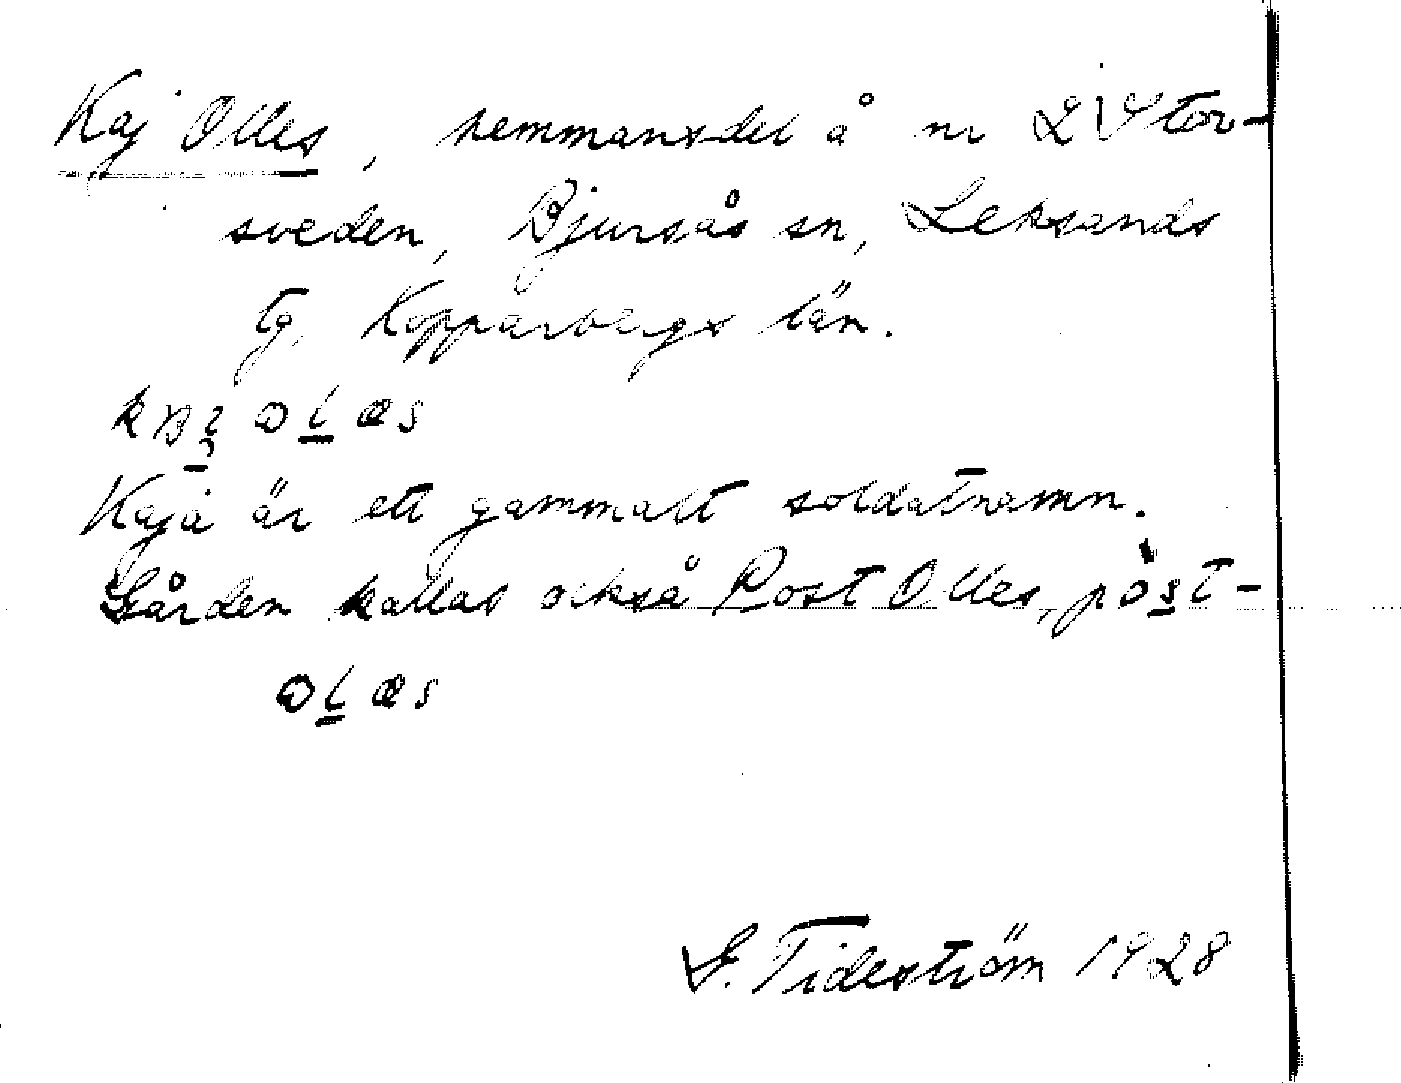 Kaj Olles, hemmansdel å nr 2 Stor-
sveden, Bjursås sn, Leksands
tg, Kopparbergs län.
Kajà är ett gammalt soldatnamn.
Gården kallas också Post Olles, pòst-
G. Tideström 1928